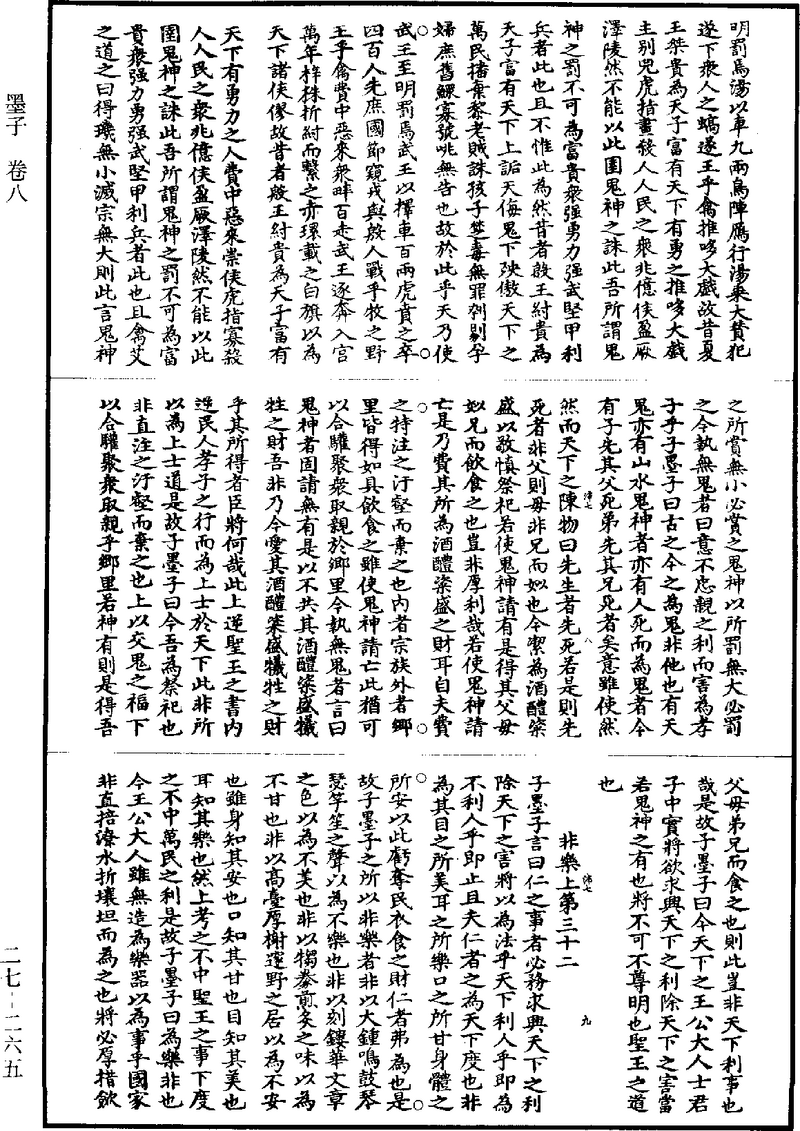 墨子　卷八
二七-二六五
明罰焉湯以車九兩鳥陣鴈行湯乘大贊犯
遂下衆人之蝺遂王乎禽推哆大戲故昔夏
王桀貴為天子富有天下有勇之推哆大戲
主别兕虎指畫殺人人民之衆兆億侯盈厥
澤陵然不能以此圉鬼神之誅此吾所謂鬼
神之罰不可為富貴衆强勇力强武堅甲利
兵者此也且不惟此為然昔者殷王紂貴為
天子富有天下上詬天侮鬼下殃傲天下之
萬民播棄黎老賊誅孩子楚毒無罪刳剔孕
婦庶舊鰥寡號咷無告也故於此乎天乃使
武王至明罰焉武王以擇車百兩虎賁之卒
四百人先庶國節窺戎與殷人戰乎牧之野
王乎禽費中惡來衆畔百走武王逐奔入宮
萬年梓株折紂而繫之赤環載之白旗以為
天下諸侯僇故昔者殷王紂貴為天子富有
天下有勇力之人費中惡來崇侯虎指寡殺
人人民之衆兆億侯盈厥澤陵然不能以此
圉鬼神之誅此吾所謂鬼神之罰不可為富
貴衆强力勇强武堅甲利兵者此也且禽艾
之道之曰得璣無小滅宗無大則此言鬼神
之所賞無小必賞之鬼神以所罰無大必罰
之今執無鬼者曰意不忠親之利而害為孝
子乎子墨子曰古之今之為鬼非他也有天
鬼亦有山水鬼神者亦有人死而為鬼者今
有子先其父死弟先其兄死者矣意雖使然
然而天下之陳物曰先生者先死若是則先
死者非父則母非兄而姒也今潔為酒醴粢
盛以敬慎祭祀若使鬼神請有是得其父母
姒兄而飲食之也豈非厚利哉若使鬼神請
亡是乃費其所為酒醴粢盛之財耳自夫費
之特注之汙壑而棄之也内者宗族外者鄉
里皆得如具飲食之雖使鬼神請亡此猶可
以合驩聚衆取親於鄉里今執無鬼者言曰
鬼神者固請無有是以不共其酒醴粢盛犧
牲之財吾非乃今愛其酒醴粢盛犧牲之財
乎其所得者臣將何哉此上逆聖王之書内
逆民人孝子之行而為上士於天下此非所
以為上士道是故子墨子曰今吾為祭祀也
非直注之汙壑而棄之也上以交鬼之福下
以合驩聚衆取親乎鄉里若神有則是得吾
父母弟兄而食之也則此豈非天下利事也
哉是故子墨子曰今天下之王公大人士君
子中實將欲求興天下之利除天下之害當
若鬼神之有也將不可不尊明也聖王之道
也
非樂上第三十二
子墨子言曰仁之事者必務求興天下之利
除天下之害將以為法乎天下利人乎即為
不利人乎即止且夫仁者之為天下度也非
為其目之所美耳之所樂口之所甘身體之
所安以此虧奪民衣食之財仁者弗為也是
故子墨子之所以非樂者非以大鍾鳴鼓琴
瑟竽笙之聲以為不樂也非以刻鏤華文章
之色以為不美也非以犓豢煎炙之味以為
不甘也非以高臺厚榭邃野之居以為不安
也雖身知其安也口知其甘也目知其美也
耳知其樂也然上考之不中聖王之事下度
之不中萬民之利是故子墨子曰為樂非也
今王公大人雖無造為樂器以為事乎國家
非直掊潦水折壤坦而為之也將必厚措斂